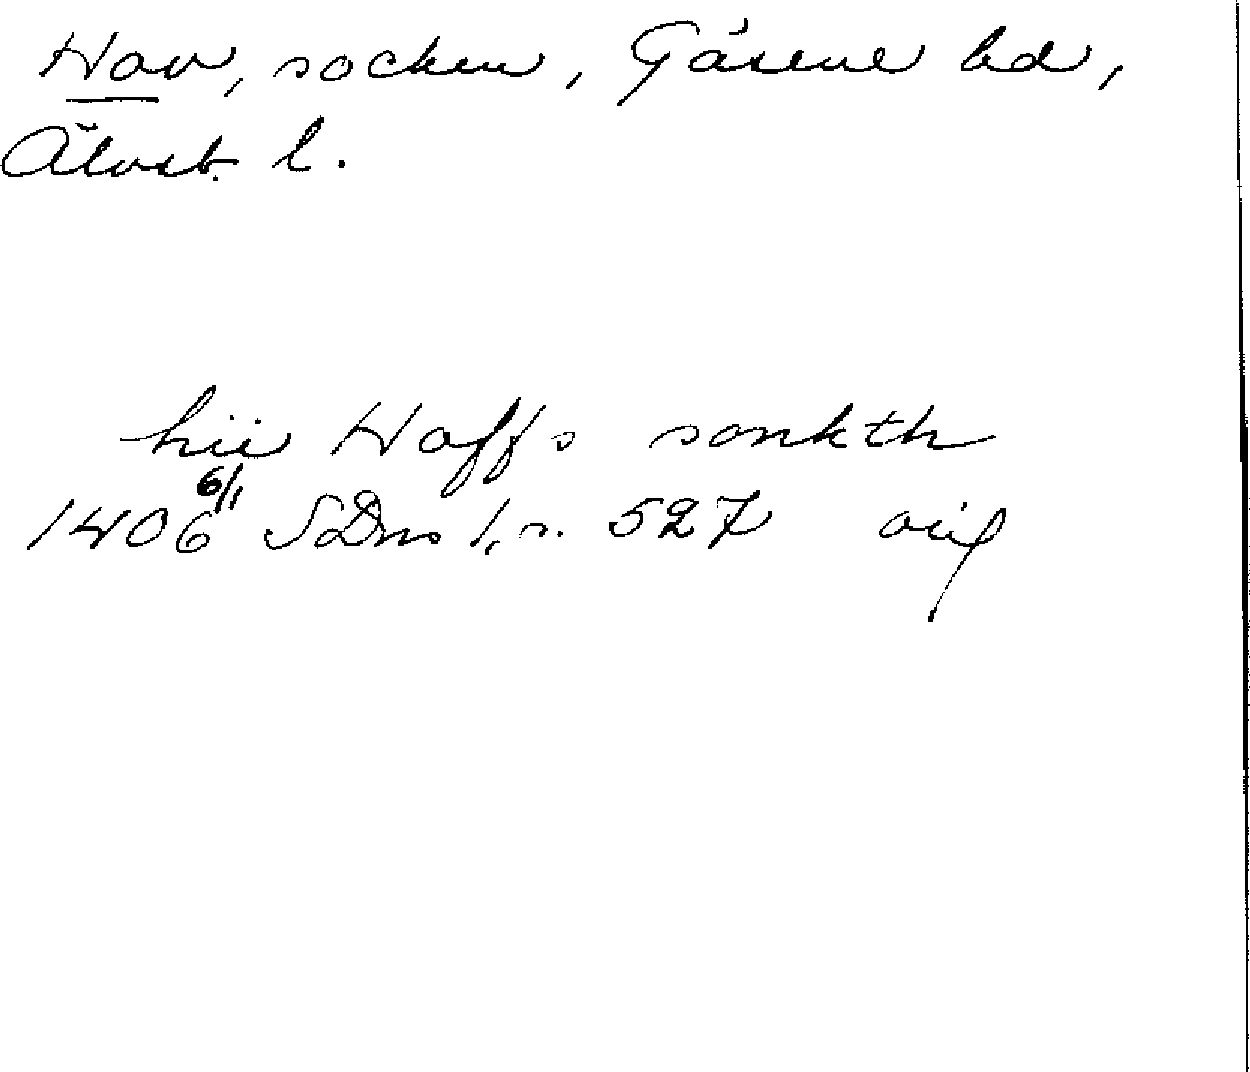 Hov, socken, Gäsene hd,
Älvsb. l.
hii Hoffs sonkth
1406 6/1 SDns 1, s. 527 orig